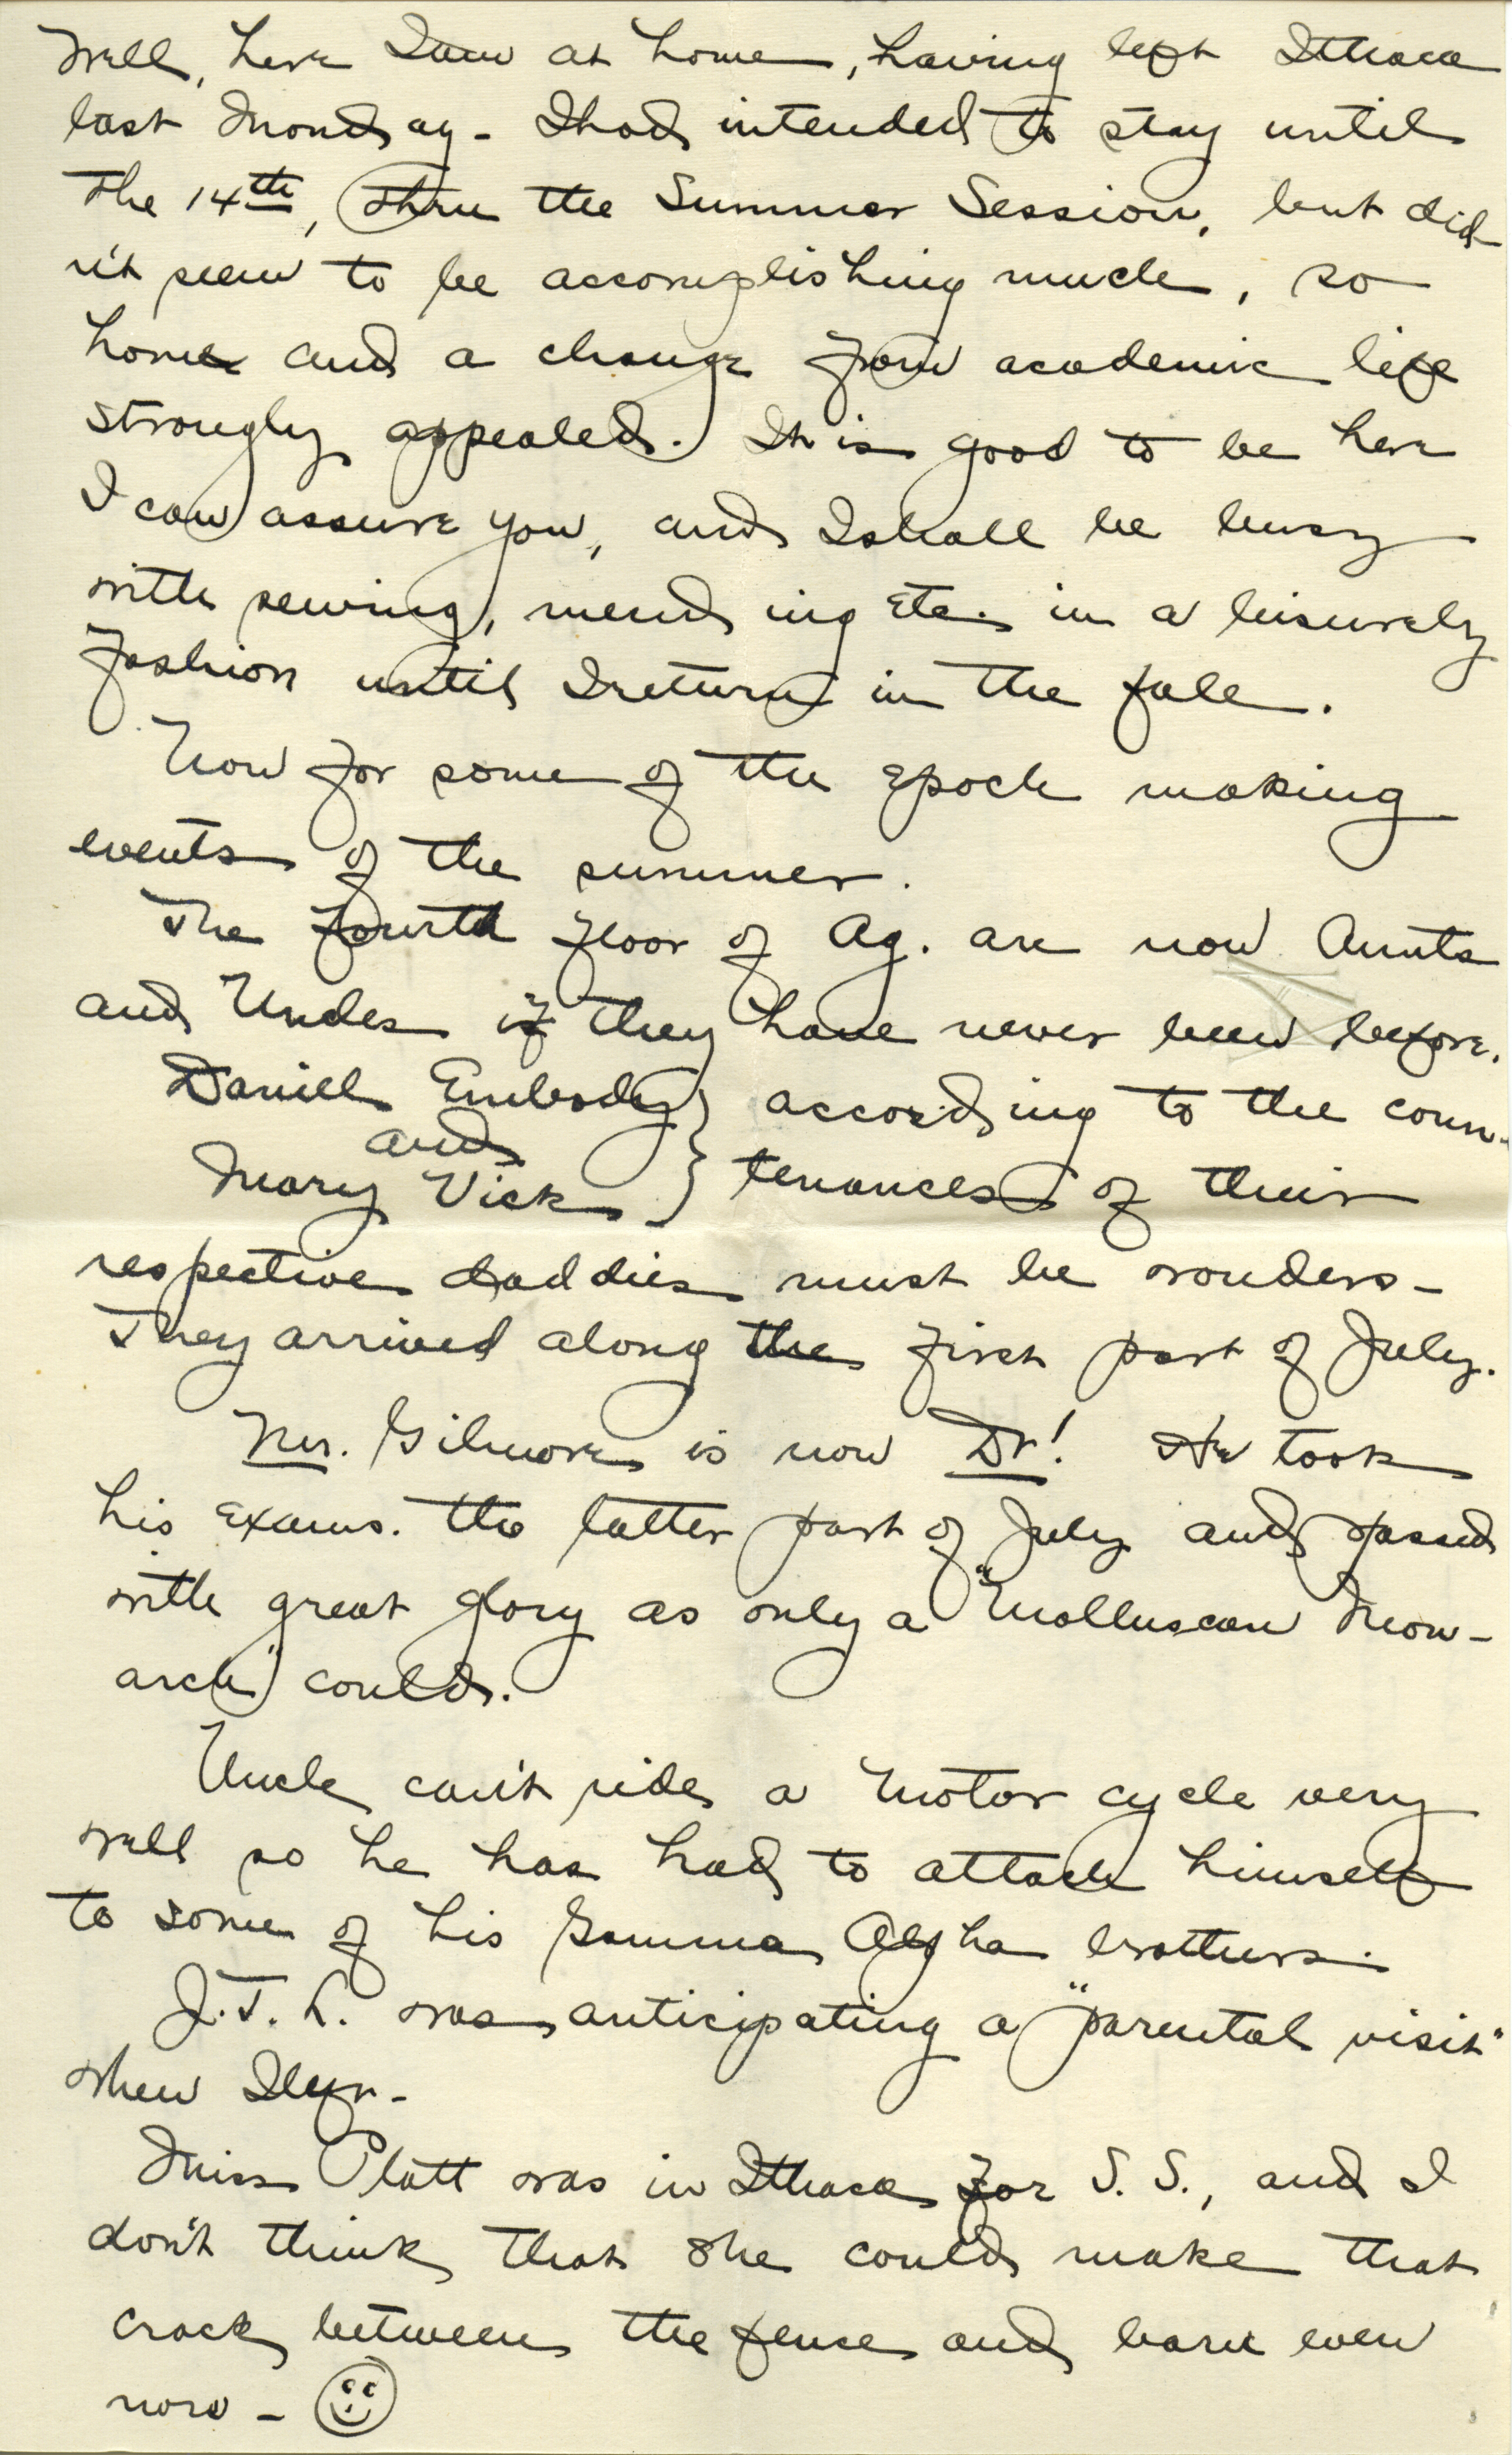 Well, here I am at home, having left Ithaca
last Monday - I had intended to stay until
the 14th, thru the Summer Session, but did
n't seem to be accomplishing much, so
home and a change from academic life
strongly appealed. It is good to be here
I can assure you, and I shall be busy
with sewing, mending etc. in a leisurely
fashion until I return in the fall.
Now for some of the epoch making
events of the summer.
The fourth floor of Ag. are now Aunts
and Uncles if they have never been before.
Daniell Embody } according to the coun-
and
Mary Vick } tenances of their
respective daddies must be wonders -
They arrived along the first part of July.
Mr. Gilmore is now Dr! He took
his exams. the latter part of July and passed
with great glory as only a "Molluscan Mon-
arch" could.
Uncle can't ride a motor cycle very
well so he has had to attach himself
to some of his Gamma Alpha brothers.
J.T.L. was anticipating a "parental visit"
when I left -
Miss Platt was in Ithaca for S. S., and I
don't think that she could make that
crack between the fence and barn even
now - ☺